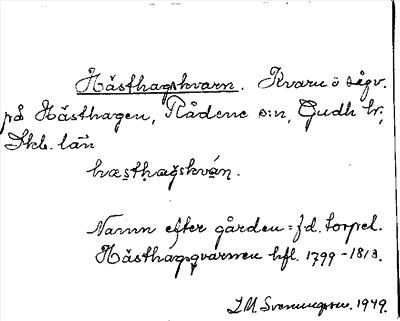 Hästhagskvarn. Kvarn o sågv.
på Hästhagen, Rådene s:n, Gudh hr;
Skb. län
hæsthagskván.
Namn efter gården = f.d. torpel.
Hästhagsqvarnen hfl. 1799-1813.
J.M. Svenungsson. 1949.